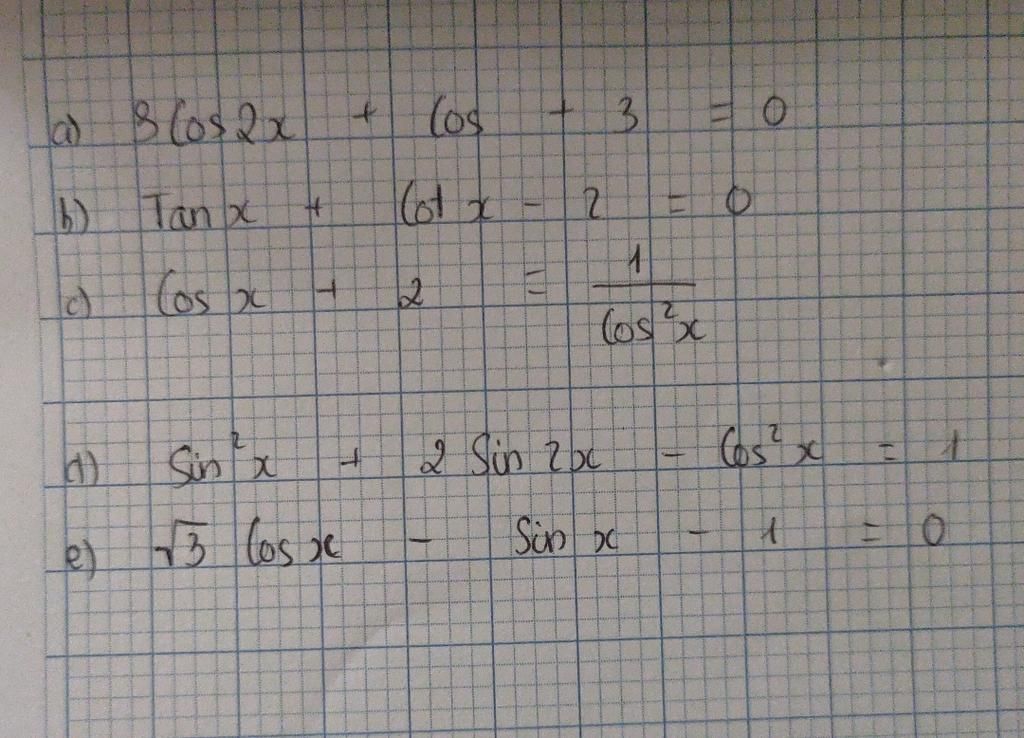 a) 3 Cos 2x + Cos + 3 = 0
b) Tan x + Cot x - 2 = 0
c) Cos x + 2 = 1/Cos²x
d) Sin²x + 2 Sin 2x - Cos²x = 1
e) √3 Cos x - Sin x - 1 = 0